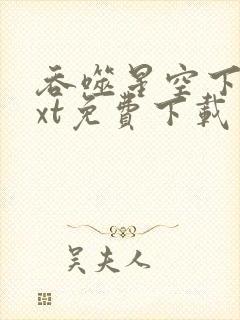 吞噬星空下
xt免費下載
吴夫人